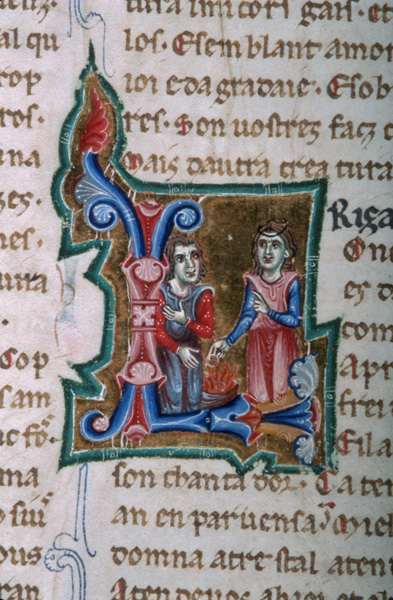 al qu
rop
ros.
una
zes.
nes.
uira
Cop
sam
ma
ous
tura imi cors gais. et
los. Esemblant amor
ioi e dagradaie. Esob
res. Son uostrez faiz c
mais dautra creatura
L
Riga
One
ez d
com
Apr
frei
Fila
son chanta doz. Ca ten
an en paruensa Miel
domna atrestal aten